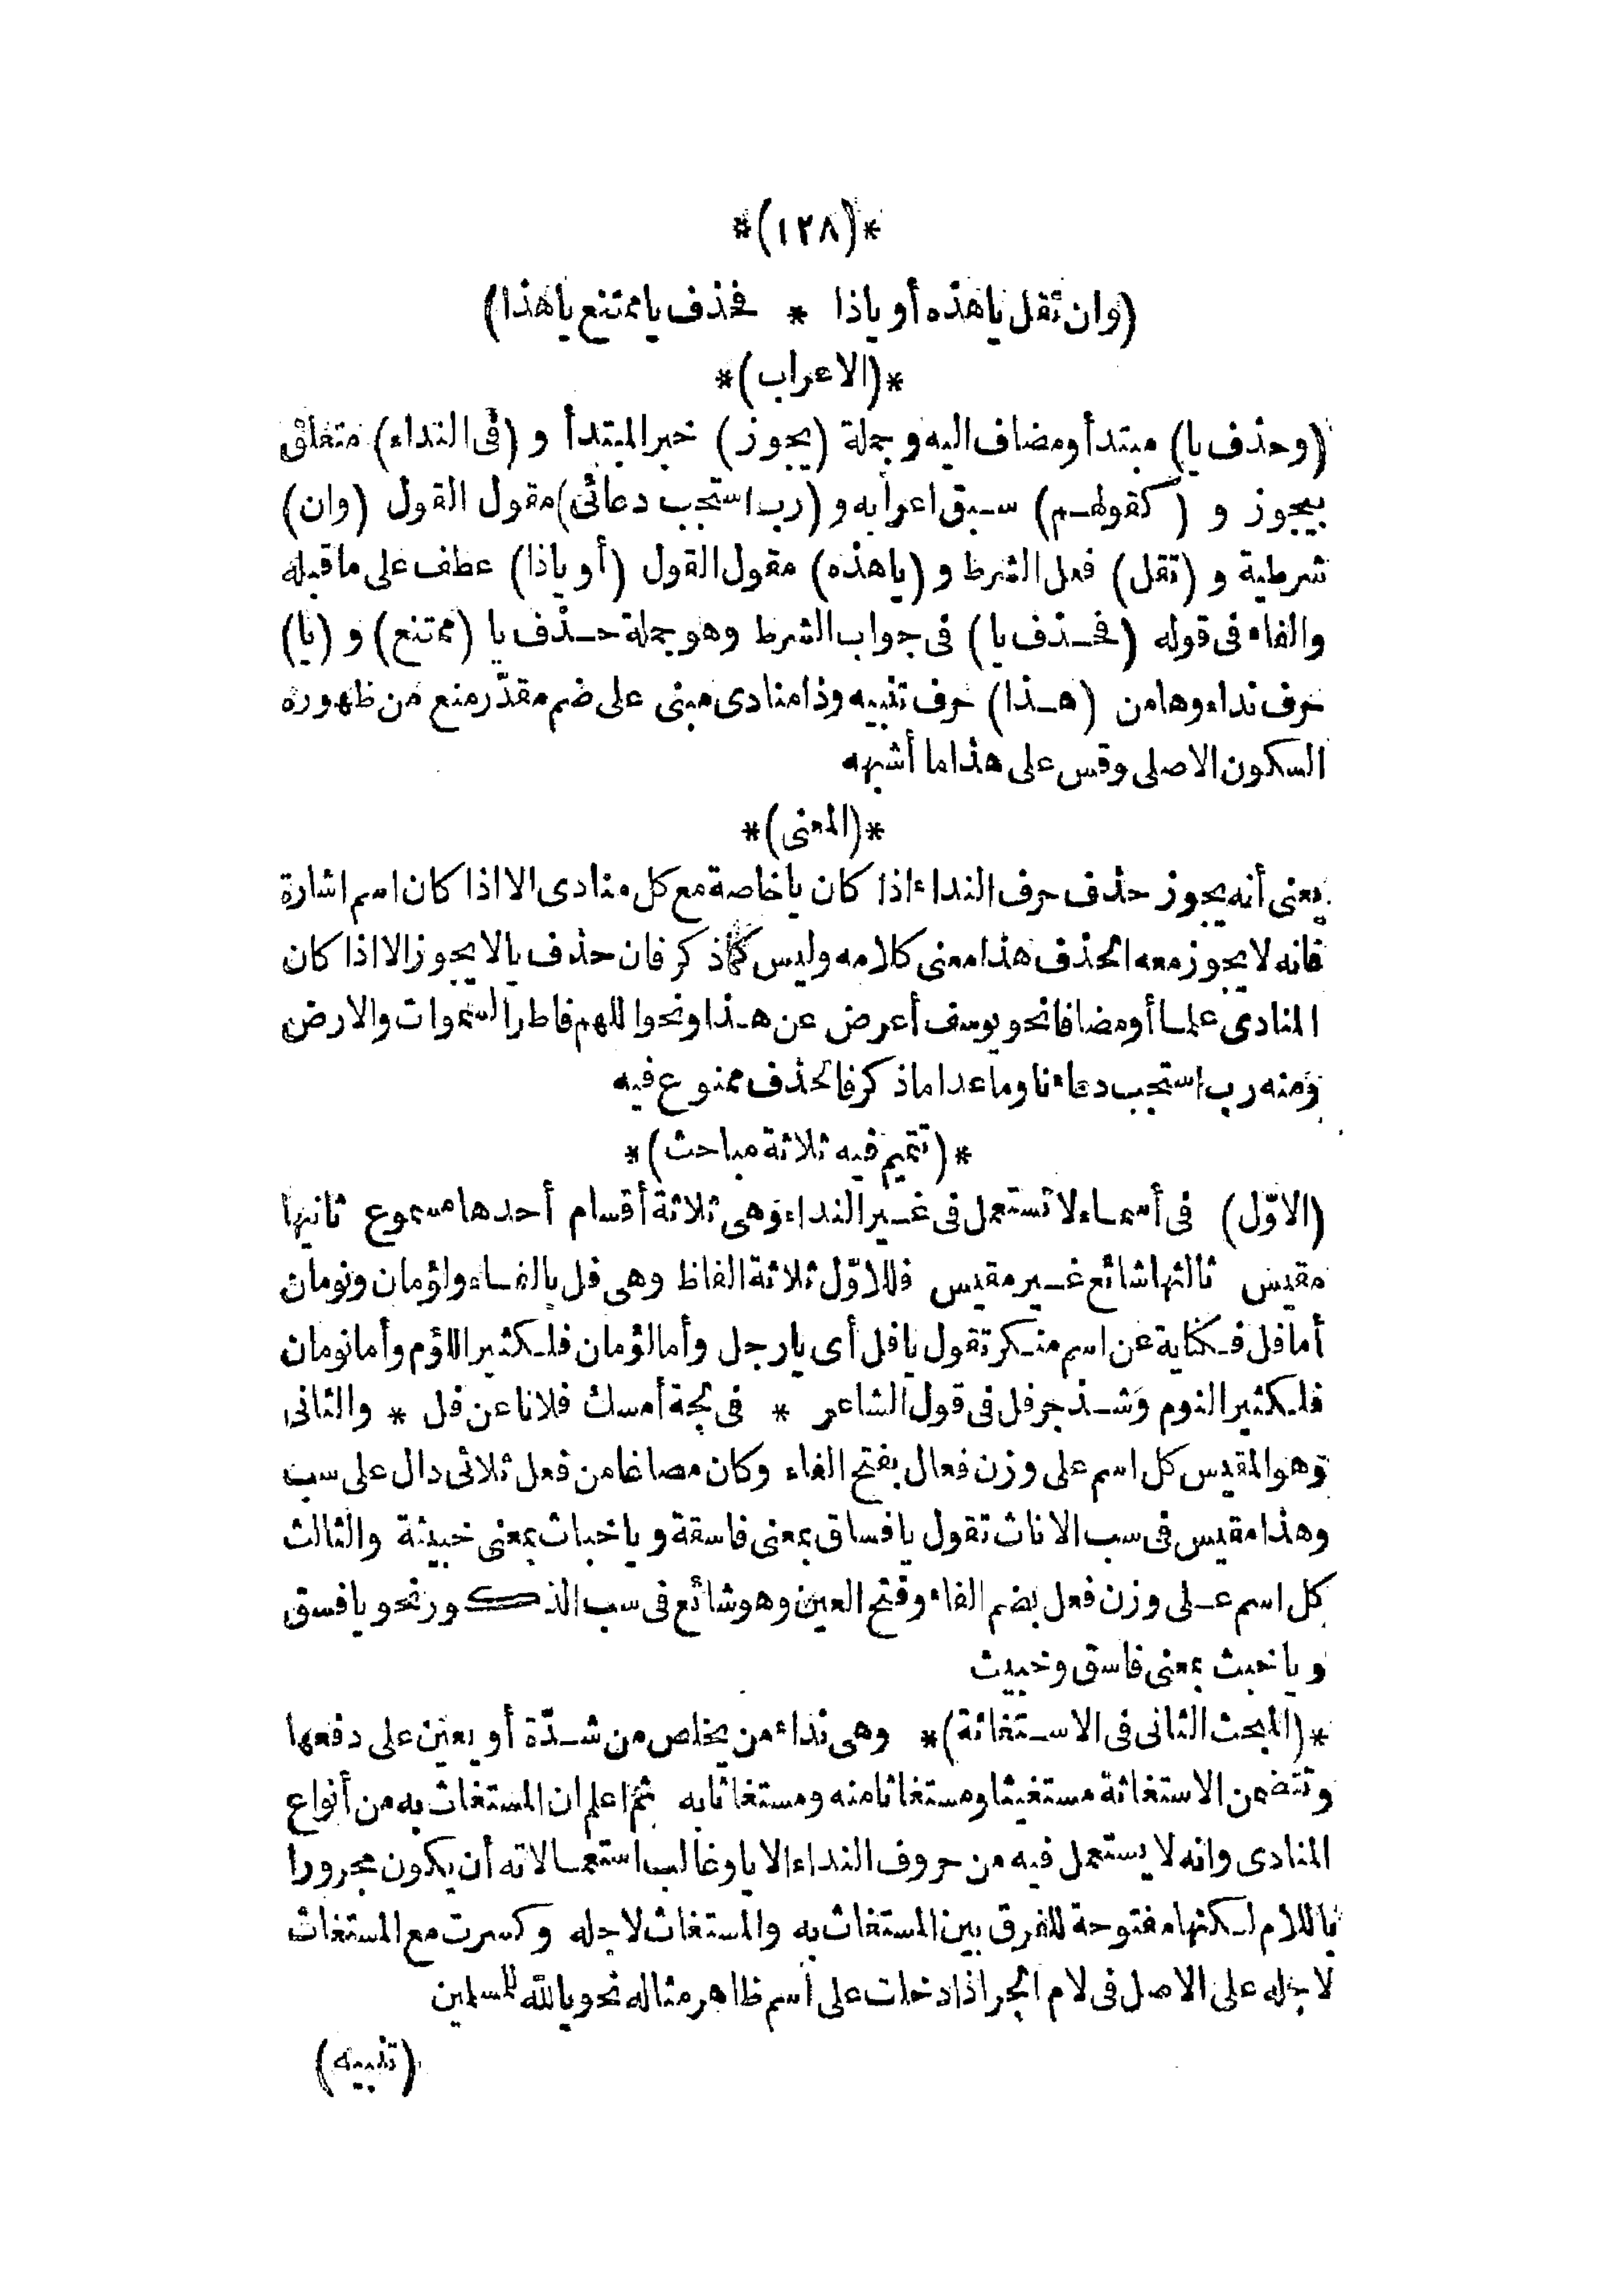 *(١٢٨)*
(وان تقل ياهذه أو ياذا * فحذف يا ممتنع ياهذا)
*(الاعراب)*
(وحذف يا) مبتدأ ومضاف اليه وجملة (يجوز) خبر المبتدأ و (فى النداء) متعلق
بيجوز و (كقولهم) سبق اعرابه و (رب استجب دعائى) مقول القول (وان)
شرطية و (تقل) فعل الشرط و (ياهذه) مقول القول (أو ياذا) عطف على ما قبله
والفاء فى قوله (فحذف يا) فى جواب الشرط وهو جملة حذف يا (ممتنع) و (يا)
حرف نداء وها من (هذا) حرف تنبيه وذا منادى مبنى على ضم مقدّر منع من ظهوره
السكون الاصلى وقس على هذا ما أشبهه
*(المعنى)*
يعنى أنه يجوز حذف حرف النداء اذا كان يا خاصة مع كل منادى الا اذا كان اسم اشارة
فانه لا يجوز معه الحذف هذا معنى كلامه وليس كما ذكر فان حذف يا لا يجوز الا اذا كان
المنادى علما أو مضافا نحو يوسف أعرض عن هذا ونحو اللهم فاطر السموات والارض
ومنه رب استجب دعاءنا وما عدا ما ذكر فالحذف ممنوع فيه
*(تتميم فيه ثلاثة مباحث)*
(الاوّل) فى أسماء لا تستعمل فى غير النداء وهى ثلاثة أقسام أحدها مسموع ثانيها
مقيس ثالثها شائع غير مقيس فللاوّل ثلاثة الفاظ وهى فل بالفاء ولؤمان ونومان
أما فل فكناية عن اسم منكر تقول يا فل أى يا رجل وأما لؤمان فلكثير اللؤم وأما نومان
فلكثير النوم وشذ جر فل فى قول الشاعر * فى لجة أمسك فلانا عن فل * والثانى
وهو المقيس كل اسم على وزن فعال بفتح الفاء وكان مصاغا من فعل ثلاثى دال على سب
وهذا مقيس فى سب الاناث تقول يا فساق بمعنى فاسقة و يا خباث بمعنى خبيثة والثالث
كل اسم على وزن فعل بضم الفاء وفتح العين وهو شائع فى سب الذكور نحو يا فسق
و يا خبث بمعنى فاسق وخبيث
*(المبحث الثانى فى الاستغاثة)* وهى نداء من يخلص من شدّة أو يعين على دفعها
وتتضمن الاستغاثة مستغيثا ومستغاثا منه ومستغاثا به ثم اعلم ان المستغاث به من أنواع
المنادى وانه لا يستعمل فيه من حروف النداء الا يا وغالب استعمالاته أن يكون مجرورا
باللام لكنها مفتوحة للفرق بين المستغاث به والمستغاث لاجله وكسرت مع المستغاث
لاجله على الاصل فى لام الجر اذا دخلت على اسم ظاهر مثاله نحو يا لله للمسلمين
(تنبيه)